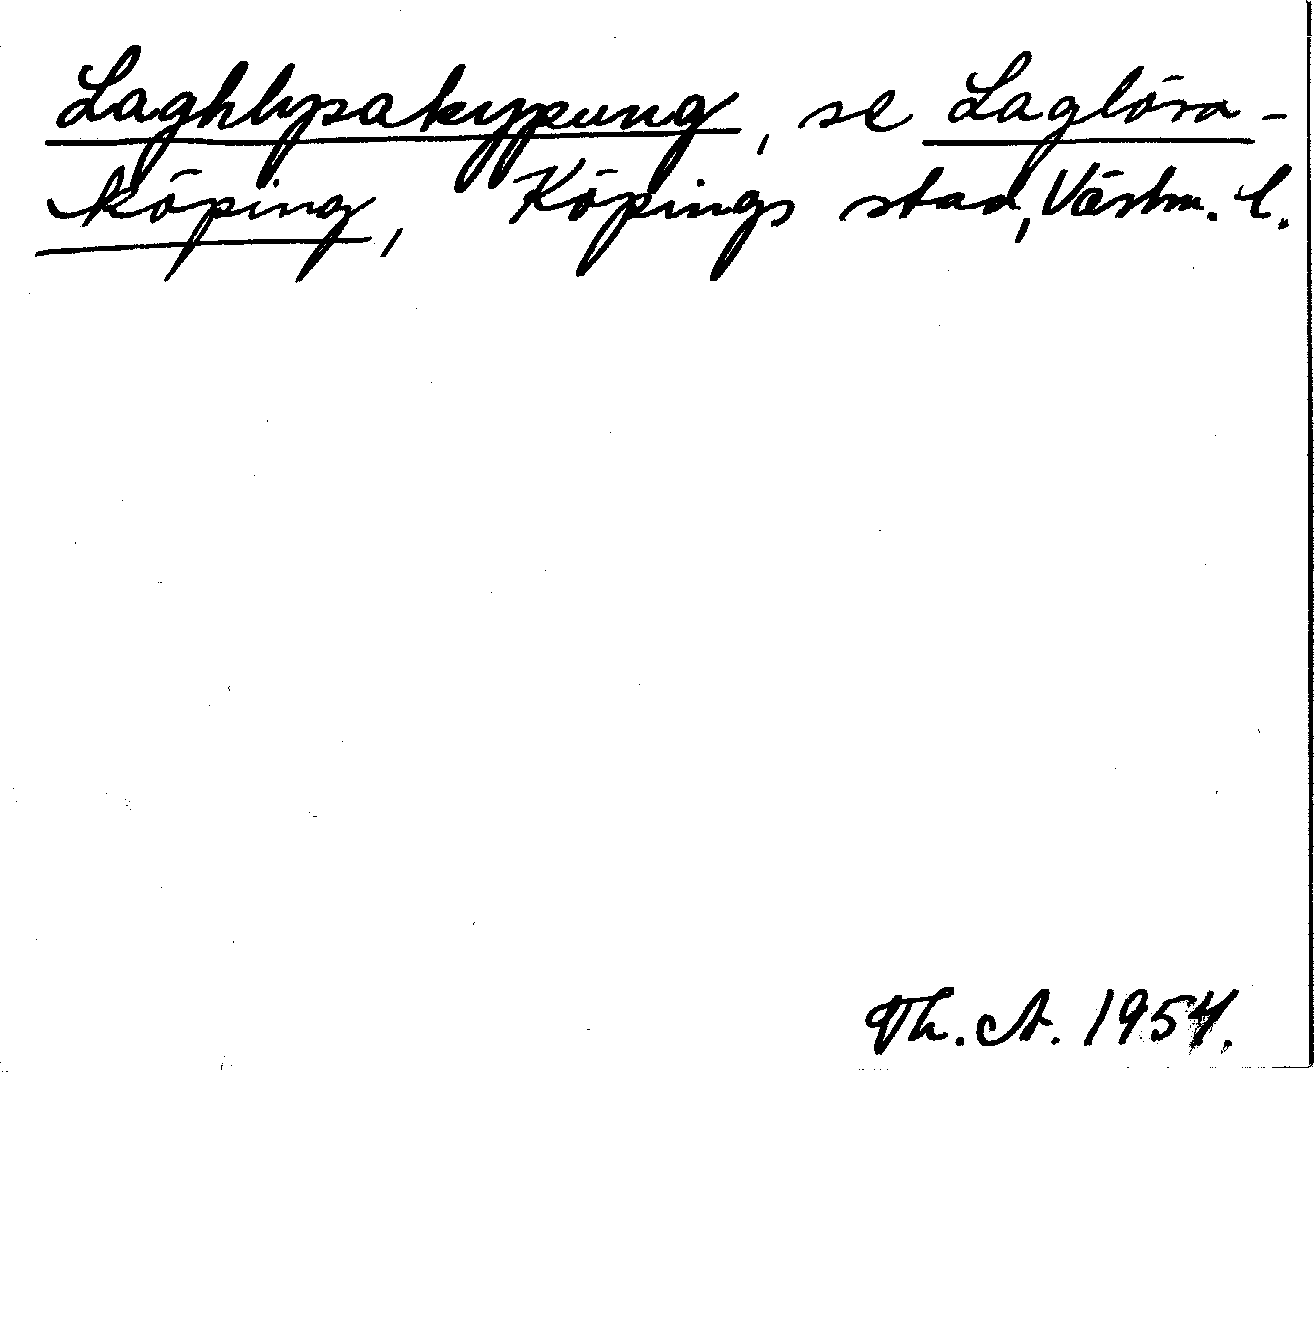 Laghlysakypung, se Laglösa-
köping, Köpings stad, Västm. l.
Th. A. 1954.